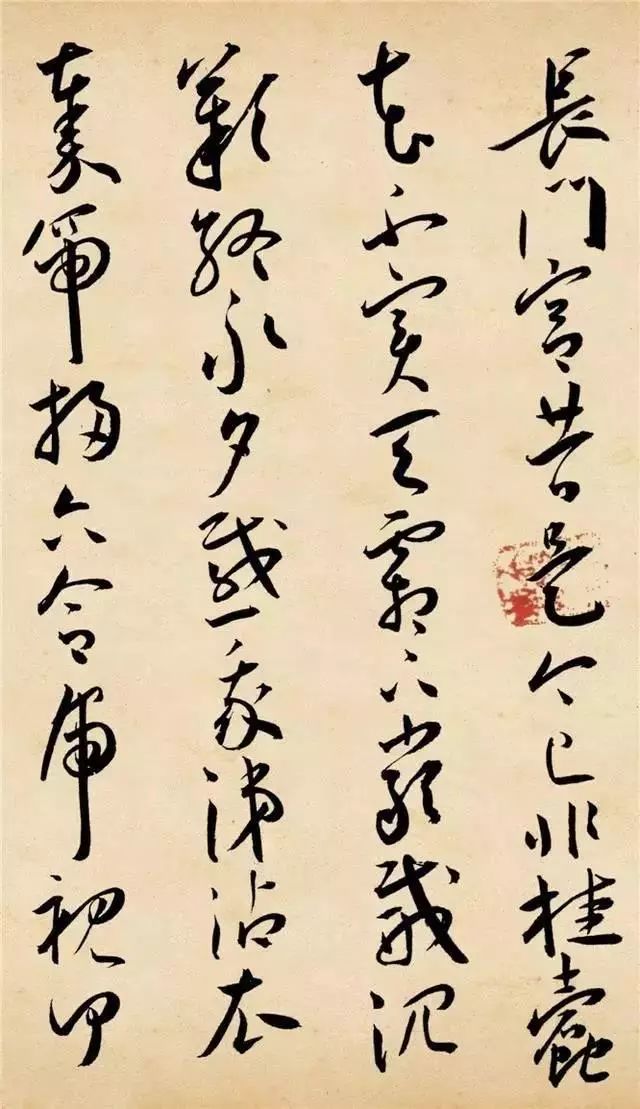 長門宮昔是今已非桂蠹
花不實天霜下嚴威沉
歎終永夕感我涕沾衣
秦帝掃六合虎視何